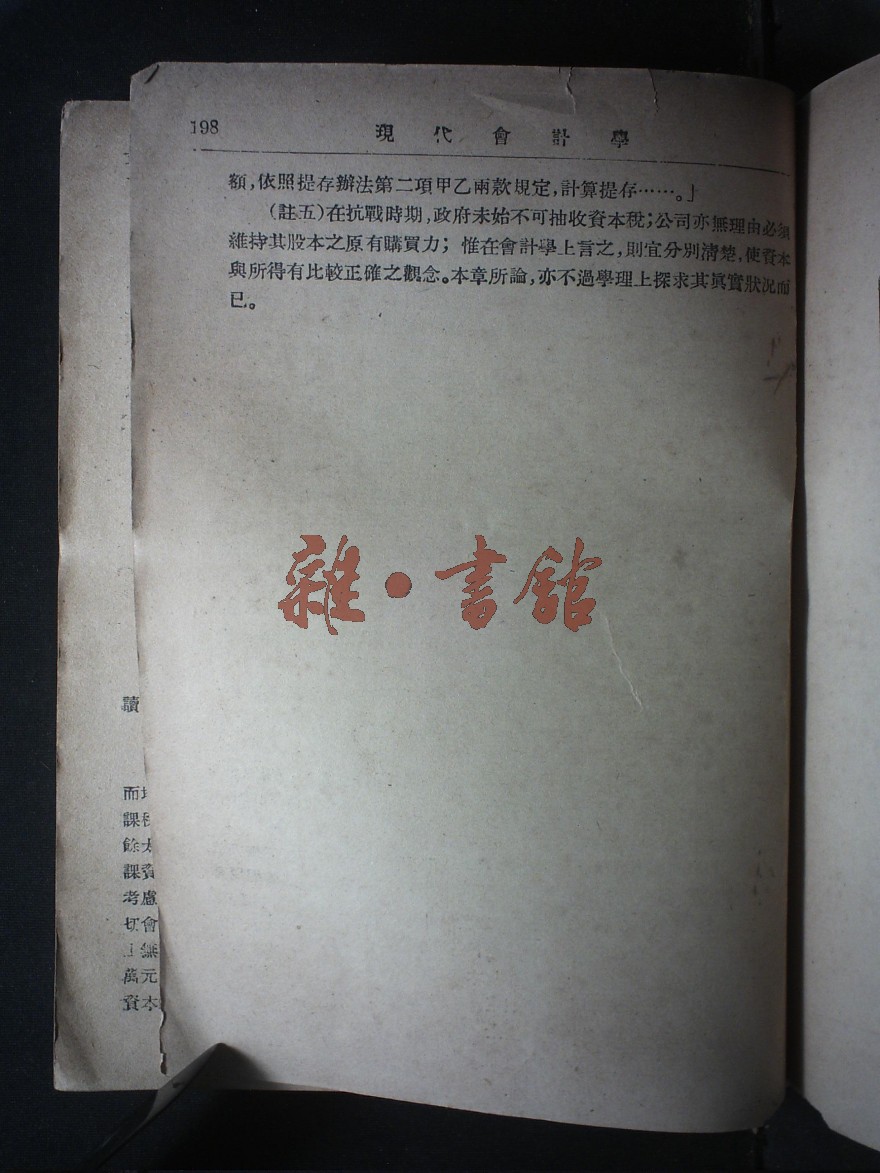 198
現代會計學
額，依照提存辦法第二項甲乙兩款規定，計算提存……。」
（註五）在抗戰時期，政府未始不可抽收資本稅；公司亦無理由必須
維持其股本之原有購買力；惟在會計學上言之，則宜分別清楚，使資本
與所得有比較正確之觀念。本章所論，亦不過學理上探求其眞實狀況而
已。
雜·書館
讀
而
課
餘
課資
考慮
切會
無
萬元
資本